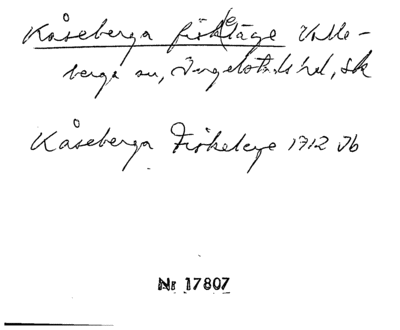 Kåseberga fisk(e)läge Valle-
berga sn, Ingelstads hd, Sk
Kåseberga Fiskeleye 1712 Jb
Nr 17807